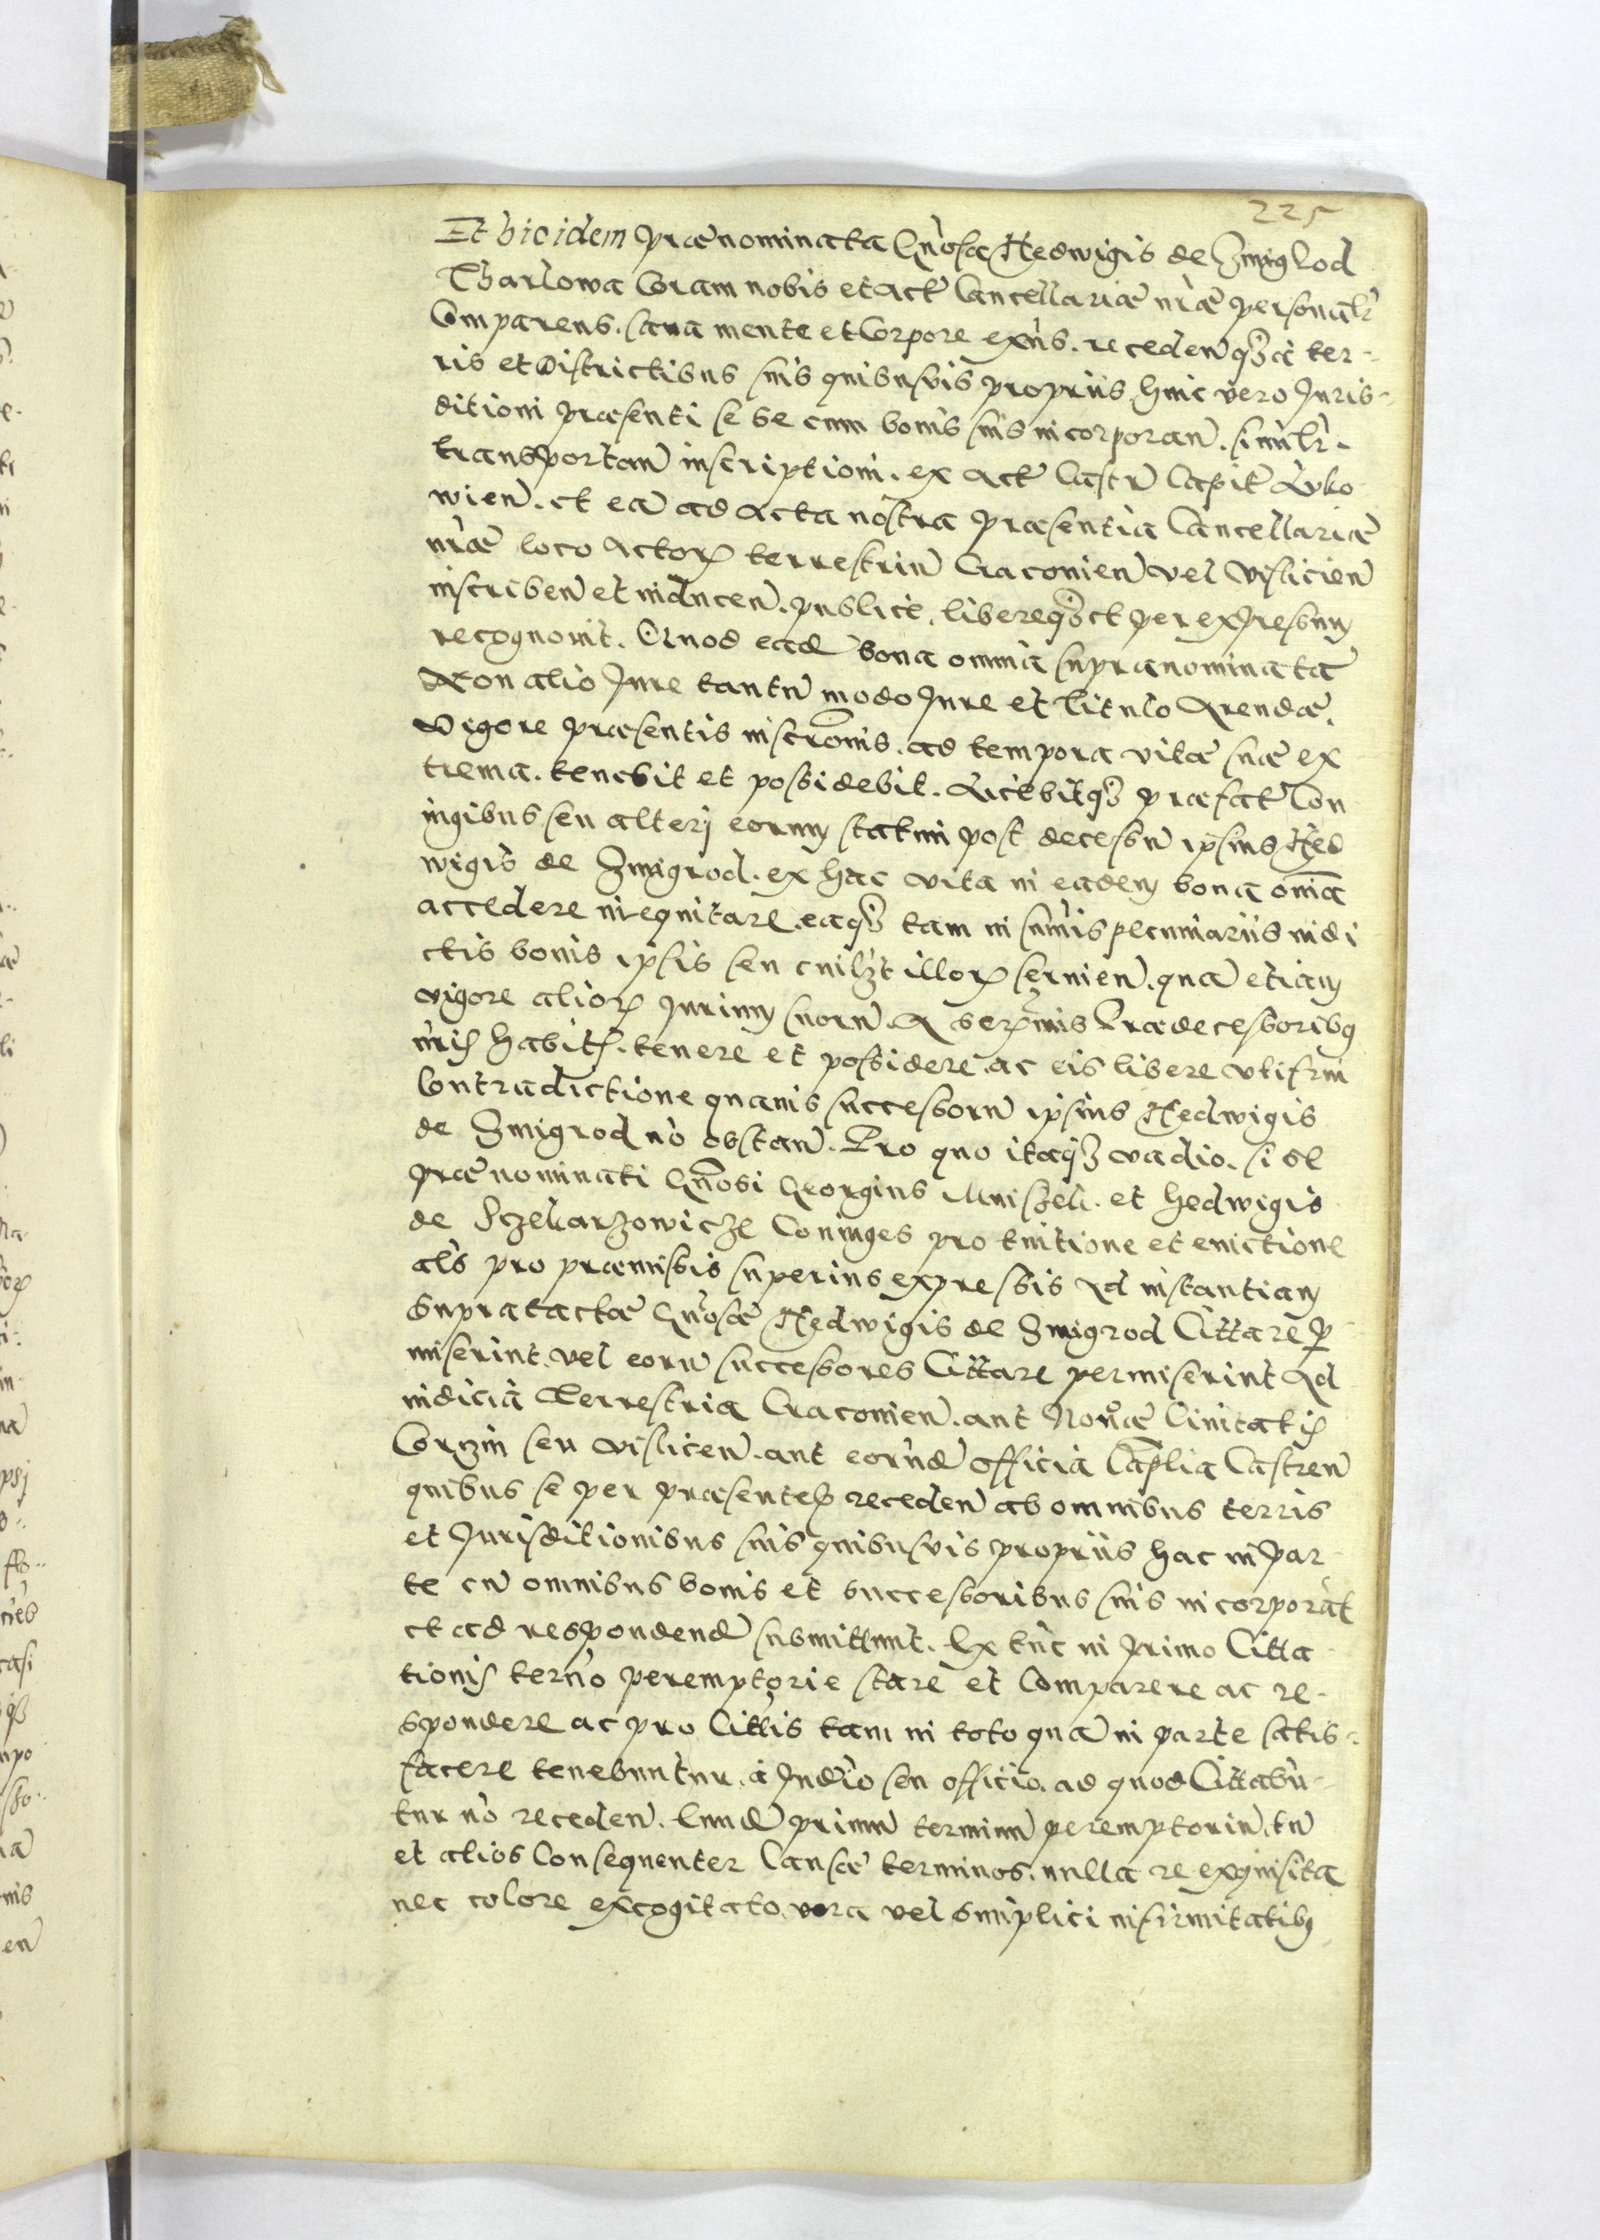 225
Et bicidem prænominata Gñosa Hedwigis de Zmiglod
Tharlowa Coram nobis et Act Cancellariæ nræ personalr
Comparens. sana mente et Corpore exñs. receden̄ q₃ à ter-
ris et Districtibus suis quibusvis propriis, huic vero Juris-
ditioni præsenti se se cum bonis suis incorporan̄. similr.
transportan̄ inscriptioni. ex Act Castrn̄ Capit Lublo-
wien̄. et eā ad Acta nostra præsentia Cancellariæ
nræ loco Actoꝝ terrestriū Cracovien̄ vel Vislicien̄
inscriben̄ et inducen̄. publicè, libereq₃ et per expressum
recognovit. Quod ead̄ bona omnia supranominata
Non alio Jure tantū modo Jure et titulo Arendæ.
Vigore præsentis inscrōnis. ad tempora vitæ suæ ex
trema. tenebit et possidebit. Licebitq₃ præfat Con
iugibus seu alterj eorum statim post decessū ipsius Hed
wigis de Zmigrod. ex hac vita in eadem bona om̄ia
accedere inequitare. eaq₃ tam in sum̄is pecuniariis indi
ctis bonis ipsis seu cuilzt illoꝝ servien̄. quā etiam
vigore alioꝝ Jurium suorū. A serm̄is Prædecessoribꝫ
nris habitis. tenere et possidere. ac eis libere utifrui
Contradictione quavis successorū ipsius Hedwigis
de Zmigrod nō obstan̄. Pro quo itaq₃ vadio. si se
prænominati Gñosi Georgius Mniszek. et Hedwigis
de Sczekarzowicze Coniuges pro tuitione et evictione
als pro præmissis superius expressis Ad instantiam
supratactæ Gñosæ Hedwigis de Zmigrod Cittare ꝑ
miserint. vel eorū successores Cittare permiserint Ad
iudicia Terrestria Cracovien̄. aut Novæ Civitatis
Corzin seu Vislicen̄. aut eorūd̄ officia Cap̄lia Castren̄
quibus se per præsentes receden̄ ab omnibus terris
et Jurisditionibus suis quibusvis propriis hac in par
te cū omnibus bonis et successoribus suis incorporāt
et ad respondend̄ submittunt. Ex tūc in primo Citta
tionis term̄o peremptorie stare et Comparere ac re-
spondere ac pro Cittis tam in toto quā in parte satis-
facere tenebuntur. à Judīo seu officio. ad quod Cittabū-
tur nō receden̄. Eund̄ primū terminū peremptoriū. tū
et alios Consequenter Causæ terminos. nulla re exquisita
nec colore excogitato. vera vel simplici infirmitatibꝫ